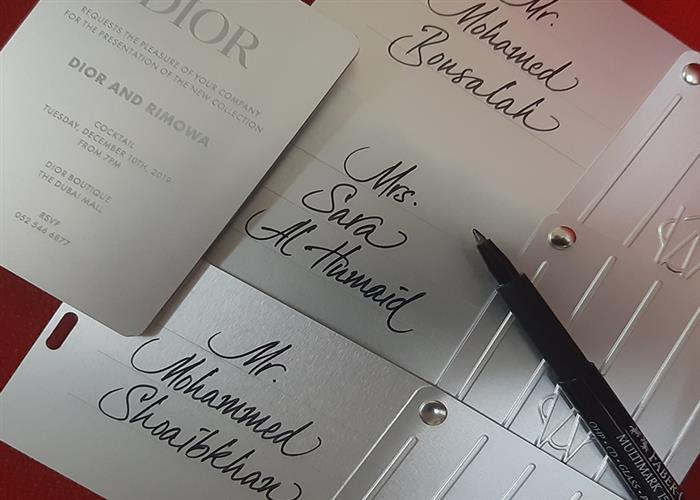 DIOR
REQUESTS THE PLEASURE OF YOUR COMPANY
FOR THE PRESENTATION OF THE NEW COLLECTION
DIOR AND RIMOWA
COCKTAIL
TUESDAY, DECEMBER 10TH, 2019
FROM 7PM
DIOR BOUTIQUE
THE DUBAI MALL
RSVP
052 546 6877
Mr.
Mohamed
Bousalah
Mrs.
Sara
Al Humaid
Mr.
Mohammed
Shoaibkhan
FABER
MULTIMARK